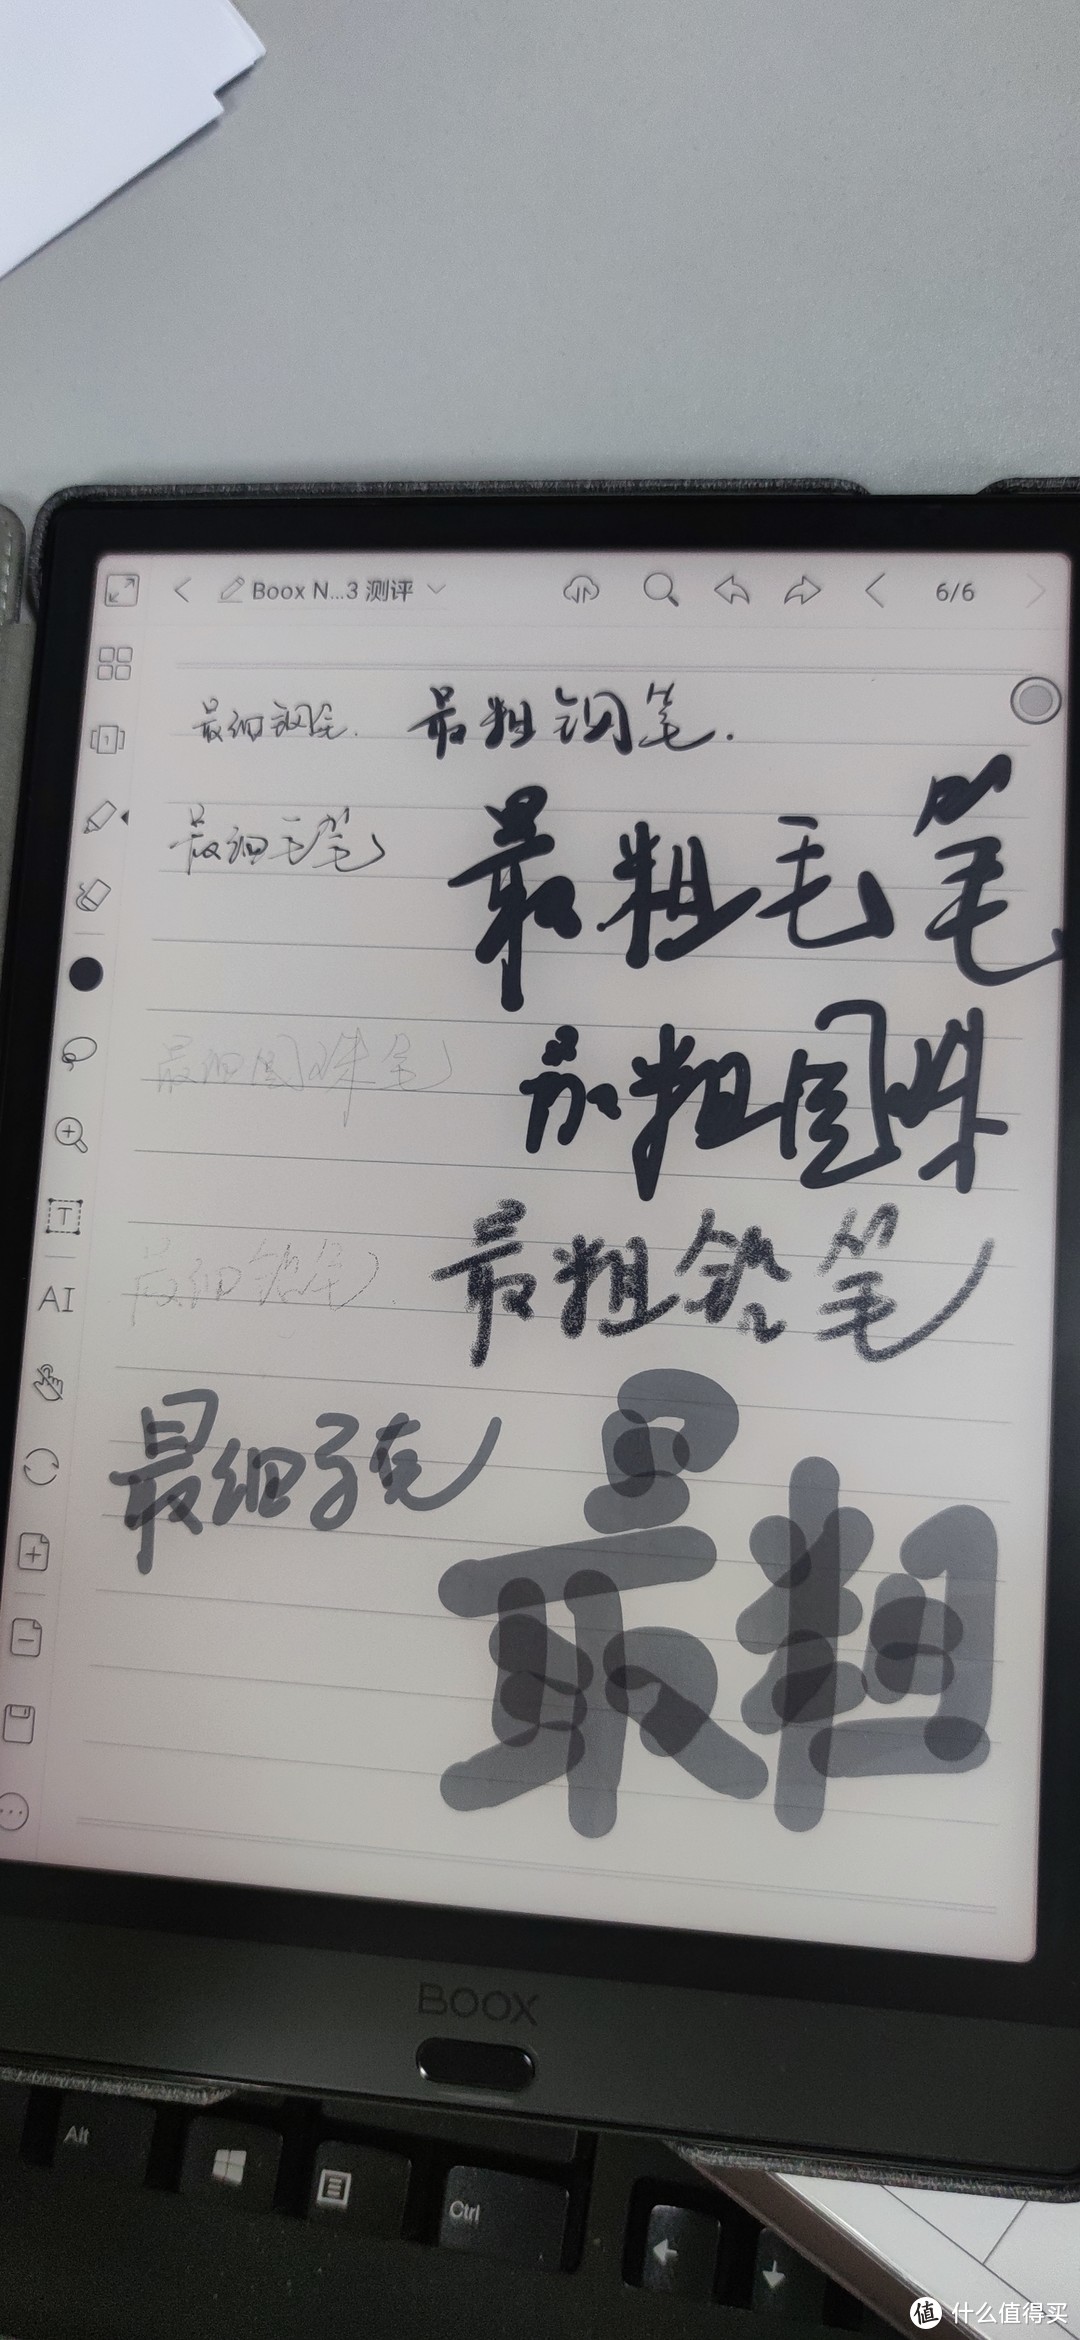 Boox N...3 测评 6/6
最细钢笔. 最粗钢笔.
最细毛笔 最粗毛笔
最细圆珠笔 最粗圆珠
最细铅笔. 最粗铅笔
T
最细马克 最粗
AI
BOOX
Alt
Ctrl
值 什么值得买